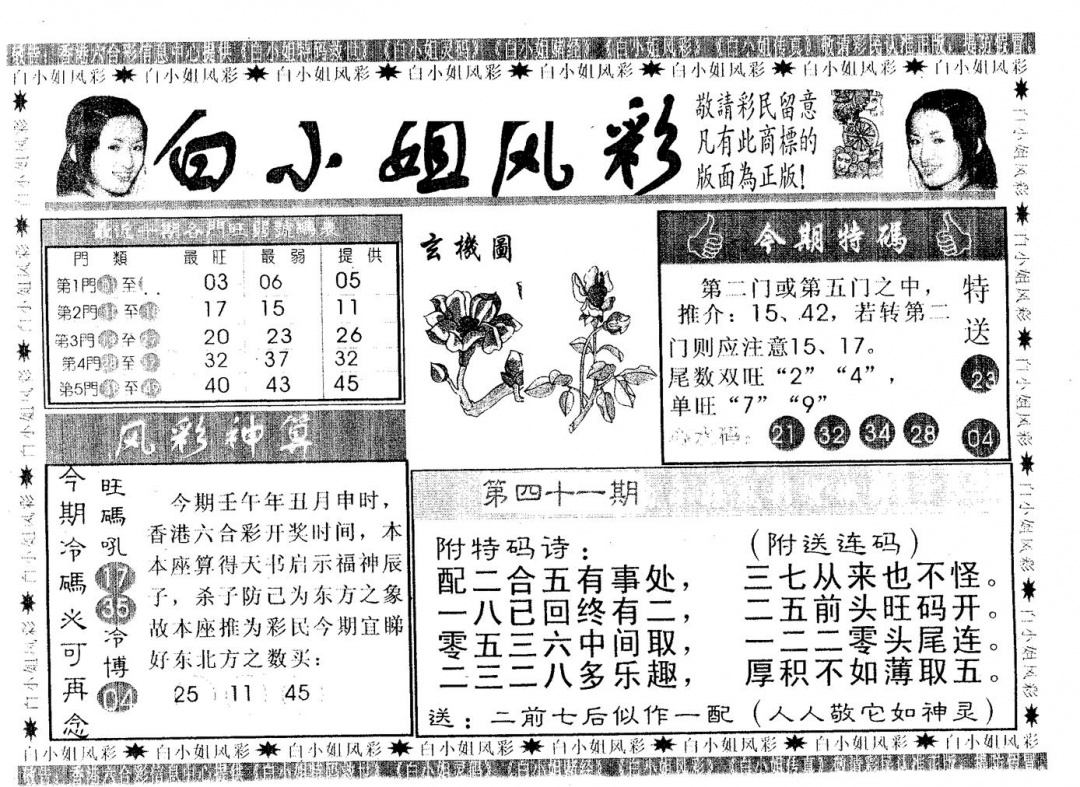 白小姐风彩 白小姐风彩 白小姐风彩 白小姐风彩 白小姐风彩 白小姐风彩 白小姐风彩 白小姐风彩
白小姐风彩
敬請彩民留意
凡有此商標的
版面為正版!
最近十期各門旺弱號碼表
門類 最旺 最弱 提供
第1門 至 03 06 05
第2門 至 17 15 11
第3門 至 20 23 26
第4門 至 32 37 32
第5門 至 40 43 45
玄機圖
今期特碼
第二门或第五门之中，
推介：15、42，若转第二
门则应注意15、17。
尾数双旺“2”“4”，
单旺“7”“9”
心水码：21 32 34 28
特送
23
04
风彩神算
今期冷碼必可再念
旺碼吼
17
35
冷博
04
今期壬午年丑月申时，
香港六合彩开奖时间，本
本座算得天书启示福神辰
子，杀子防己为东方之象
故本座推为彩民今期宜睇
好东北方之数买：
25 11 45
第四十一期
附特码诗： （附送连码）
配二合五有事处， 三七从来也不怪。
一八己回终有二， 二五前头旺码开。
零五三六中间取， 一二二零头尾连。
二三二八多乐趣， 厚积不如薄取五。
送：二前七后似作一配（人人敬它如神灵）
白小姐风彩 白小姐风彩 白小姐风彩 白小姐风彩 白小姐风彩 白小姐风彩 白小姐风彩 白小姐风彩